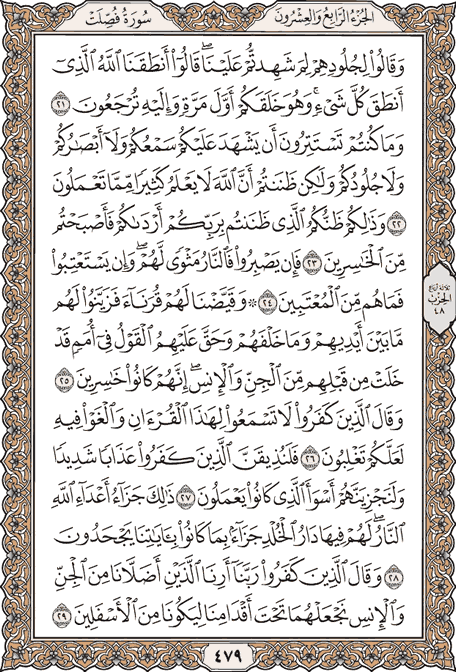 الجزء الرابع والعشرون
سورة فصلت
وَقَالُواْ لِجُلُودِهِمْ لِمَ شَهِدتُّمْ عَلَيْنَاۖ قَالُوٓاْ أَنطَقَنَا ٱللَّهُ ٱلَّذِىٓ
أَنطَقَ كُلَّ شَىْءٍۚ وَهُوَ خَلَقَكُمْ أَوَّلَ مَرَّةٍ وَإِلَيْهِ تُرْجَعُونَ ٢١
وَمَا كُنتُمْ تَسْتَتِرُونَ أَن يَشْهَدَ عَلَيْكُمْ سَمْعُكُمْ وَلَآ أَبْصَٰرُكُمْ
وَلَا جُلُودُكُمْ وَلَٰكِن ظَنَنتُمْ أَنَّ ٱللَّهَ لَا يَعْلَمُ كَثِيرًا مِّمَّا تَعْمَلُونَ
٢٢ وَذَٰلِكُمْ ظَنُّكُمُ ٱلَّذِى ظَنَنتُم بِرَبِّكُمْ أَرْدَىٰكُمْ فَأَصْبَحْتُم
مِّنَ ٱلْخَٰسِرِينَ ٢٣ فَإِن يَصْبِرُواْ فَٱلنَّارُ مَثْوًى لَّهُمْۖ وَإِن يَسْتَعْتِبُواْ
فَمَا هُم مِّنَ ٱلْمُعْتَبِينَ ٢٤ ۞ وَقَيَّضْنَا لَهُمْ قُرَنَآءَ فَزَيَّنُواْ لَهُم
مَّا بَيْنَ أَيْدِيهِمْ وَمَا خَلْفَهُمْ وَحَقَّ عَلَيْهِمُ ٱلْقَوْلُ فِىٓ أُمَمٍ قَدْ
خَلَتْ مِن قَبْلِهِم مِّنَ ٱلْجِنِّ وَٱلْإِنسِۖ إِنَّهُمْ كَانُواْ خَٰسِرِينَ ٢٥
وَقَالَ ٱلَّذِينَ كَفَرُواْ لَا تَسْمَعُواْ لِهَٰذَا ٱلْقُرْءَانِ وَٱلْغَوْاْ فِيهِ
لَعَلَّكُمْ تَغْلِبُونَ ٢٦ فَلَنُذِيقَنَّ ٱلَّذِينَ كَفَرُواْ عَذَابًا شَدِيدًا
وَلَنَجْزِيَنَّهُمْ أَسْوَأَ ٱلَّذِى كَانُواْ يَعْمَلُونَ ٢٧ ذَٰلِكَ جَزَآءُ أَعْدَآءِ ٱللَّهِ
ٱلنَّارُۖ لَهُمْ فِيهَا دَارُ ٱلْخُلْدِ جَزَآءًۢ بِمَا كَانُواْ بِـَٔايَٰتِنَا يَجْحَدُونَ
٢٨ وَقَالَ ٱلَّذِينَ كَفَرُواْ رَبَّنَآ أَرِنَا ٱلَّذَيْنِ أَضَلَّانَا مِنَ ٱلْجِنِّ
وَٱلْإِنسِ نَجْعَلْهُمَا تَحْتَ أَقْدَامِنَا لِيَكُونَا مِنَ ٱلْأَسْفَلِينَ ٢٩
الحزب
٤٨
٤٧٩